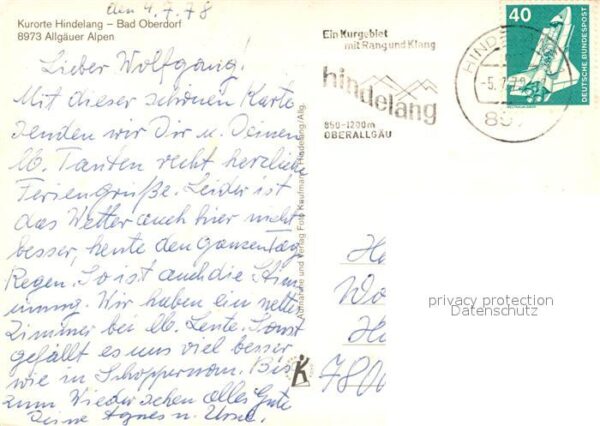 den 4.7.78
Kurorte Hindelang – Bad Oberdorf
8973 Allgäuer Alpen
Lieber Wolfgang!
Mit dieser schönen Karte
senden wir Dir u. Deinen
lb. Tanten recht herzliche
Feriengrüße. Leider ist
das Wetter auch hier nicht
besser, heute den ganzen Tag
Regen. So ist auch die Stim
mung. Wir haben ein nettes
Zimmer bei lb. Leute. Sonst
gefällt es uns viel besser
wie in Schoppernau. Bis
zum Wiedersehen alles Gute
Deine Agnes u. Ursel.
Aufnahme und Verlag Foto Kaufmann, Hindelang/Allg.
Ein Kurgebiet
mit Rang und Klang
hindelang
850-1200m
OBERALLGÄU
HINDE
-5.7.78
897
40
DEUTSCHE BUNDESPOST
He
Wo
Ha
7800
privacy protection
Datenschutz
K